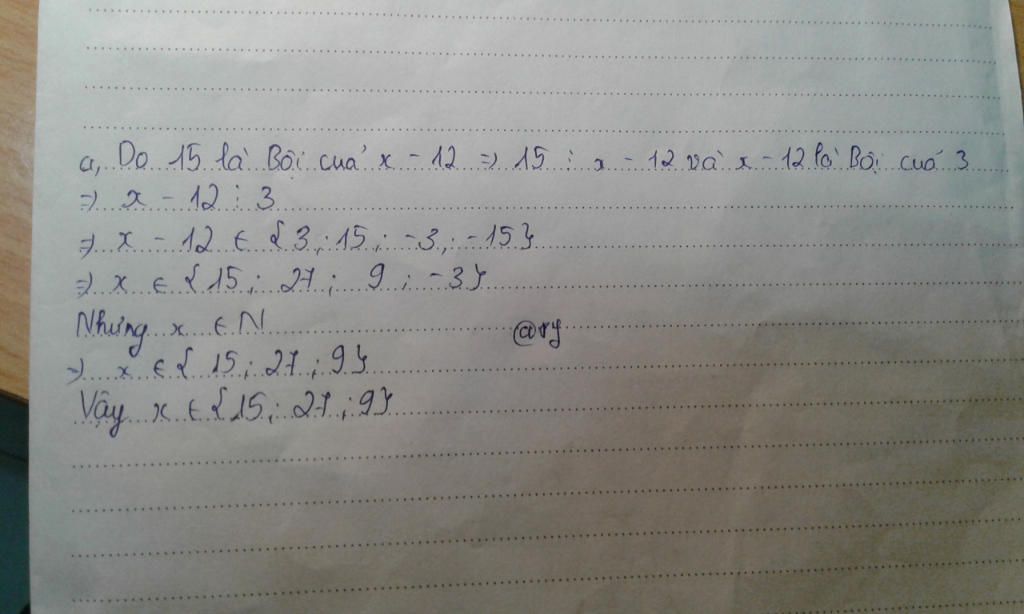 a, Do 15 là Bội cuả x - 12 => 15 ⋮ x - 12 và x - 12 là Bội cuả 3
=> x - 12 ⋮ 3
=> x - 12 ∈ {3 ; 15 ; -3 ; -15}
=> x ∈ {15 ; 27 ; 9 ; -3}
Nhưng x ∈ N
@ry
=> x ∈ { 15 ; 27 ; 9}
Vậy x ∈ {15 ; 27 ; 9}